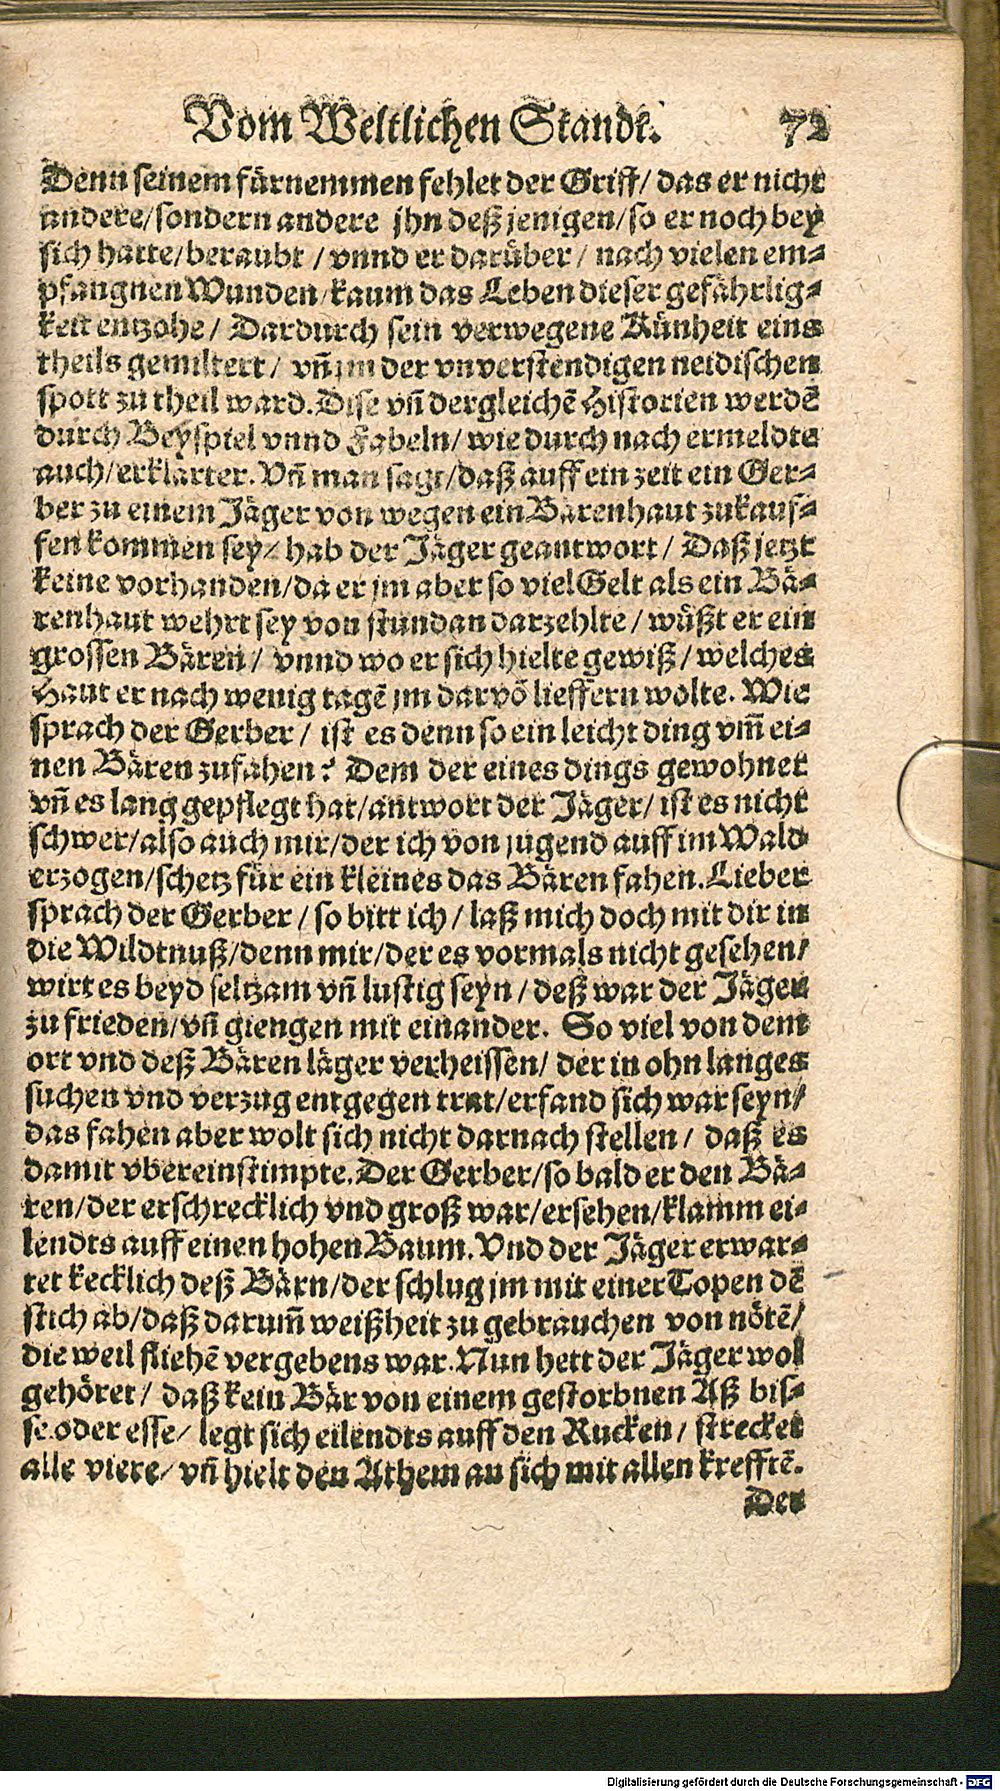 Vom Weltlichen Standt. 72
Denn seinem fürnemmen fehlet der Griff/ das er nicht
andere/sondern andere jhn deß jenigen/so er noch bey
sich hatte/beraubt / vnnd er darüber / nach vielen em-
pfangnen Wunden/kaum das Leben dieser gefährlig-
keit entzohe/ Dardurch sein verwegene Künheit eins
theils gemiltert/ vñ jm der vnverstendigen neidischen
spott zu theil ward. Dise vñ dergleichē Historien werdē
durch Beyspiel vnnd Fabeln/ wie durch nach ermeldte
auch/erklärter. Vñ man sagt/daß auff ein zeit ein Ger-
ber zu einem Jäger von wegen ein Bärenhaut zukauf-
fen kommen sey/ hab der Jäger geantwort/ Daß jetzt
keine vorhanden/da er jm aber so viel Gelt als ein Bä-
renhaut wehrt sey von stund an darzehlte/ wüßt er ein
grossen Bären/ vnnd wo er sich hielte gewiß/welches
Haut er nach wenig tagē jm darvō lieffern wolte. Wie
sprach der Gerber/ ist es denn so ein leicht ding vm̃ ei-
nen Bären zufahen? Dem der eines dings gewohnet
vñ es lang gepflegt hat/antwort der Jäger/ ist es nicht
schwer/also auch mir/der ich von jugend auff im Wald
erzogen/schetz für ein kleines das Bären fahen. Lieber
sprach der Gerber/so bitt ich/ laß mich doch mit dir in
die Wildtnuß/denn mir/der es vormals nicht gesehen/
wirt es beyd seltzam vñ lustig seyn/deß war der Jäger
zu frieden/vñ giengen mit einander. So viel von dem
ort vnd deß Bären läger verheissen/ der in ohn langes
suchen vnd verzug entgegen trat/erfand sich war seyn/
das fahen aber wolt sich nicht darnach stellen/ daß es
damit vbereinstimpte. Der Gerber/so bald er den Bä-
ren/der erschrecklich vnd groß war/ersehen/klamm ei-
lendts auff einen hohen Baum. Vnd der Jäger erwar-
tet kecklich deß Bärn/der schlug jm mit einer Topen dē
stich ab/daß darum̃ weißheit zu gebrauchen von nötē/
die weil fliehē vergebens war. Nun hett der Jäger wol
gehöret/ daß kein Bär von einem gestorbnen Aß bis-
se oder esse/ legt sich eilendts auff den Rucken/ strecket
alle viere/ vñ hielt den Athem an sich mit allen krefftē.
Der
Digitalisierung gefördert durch die Deutsche Forschungsgemeinschaft - DFG